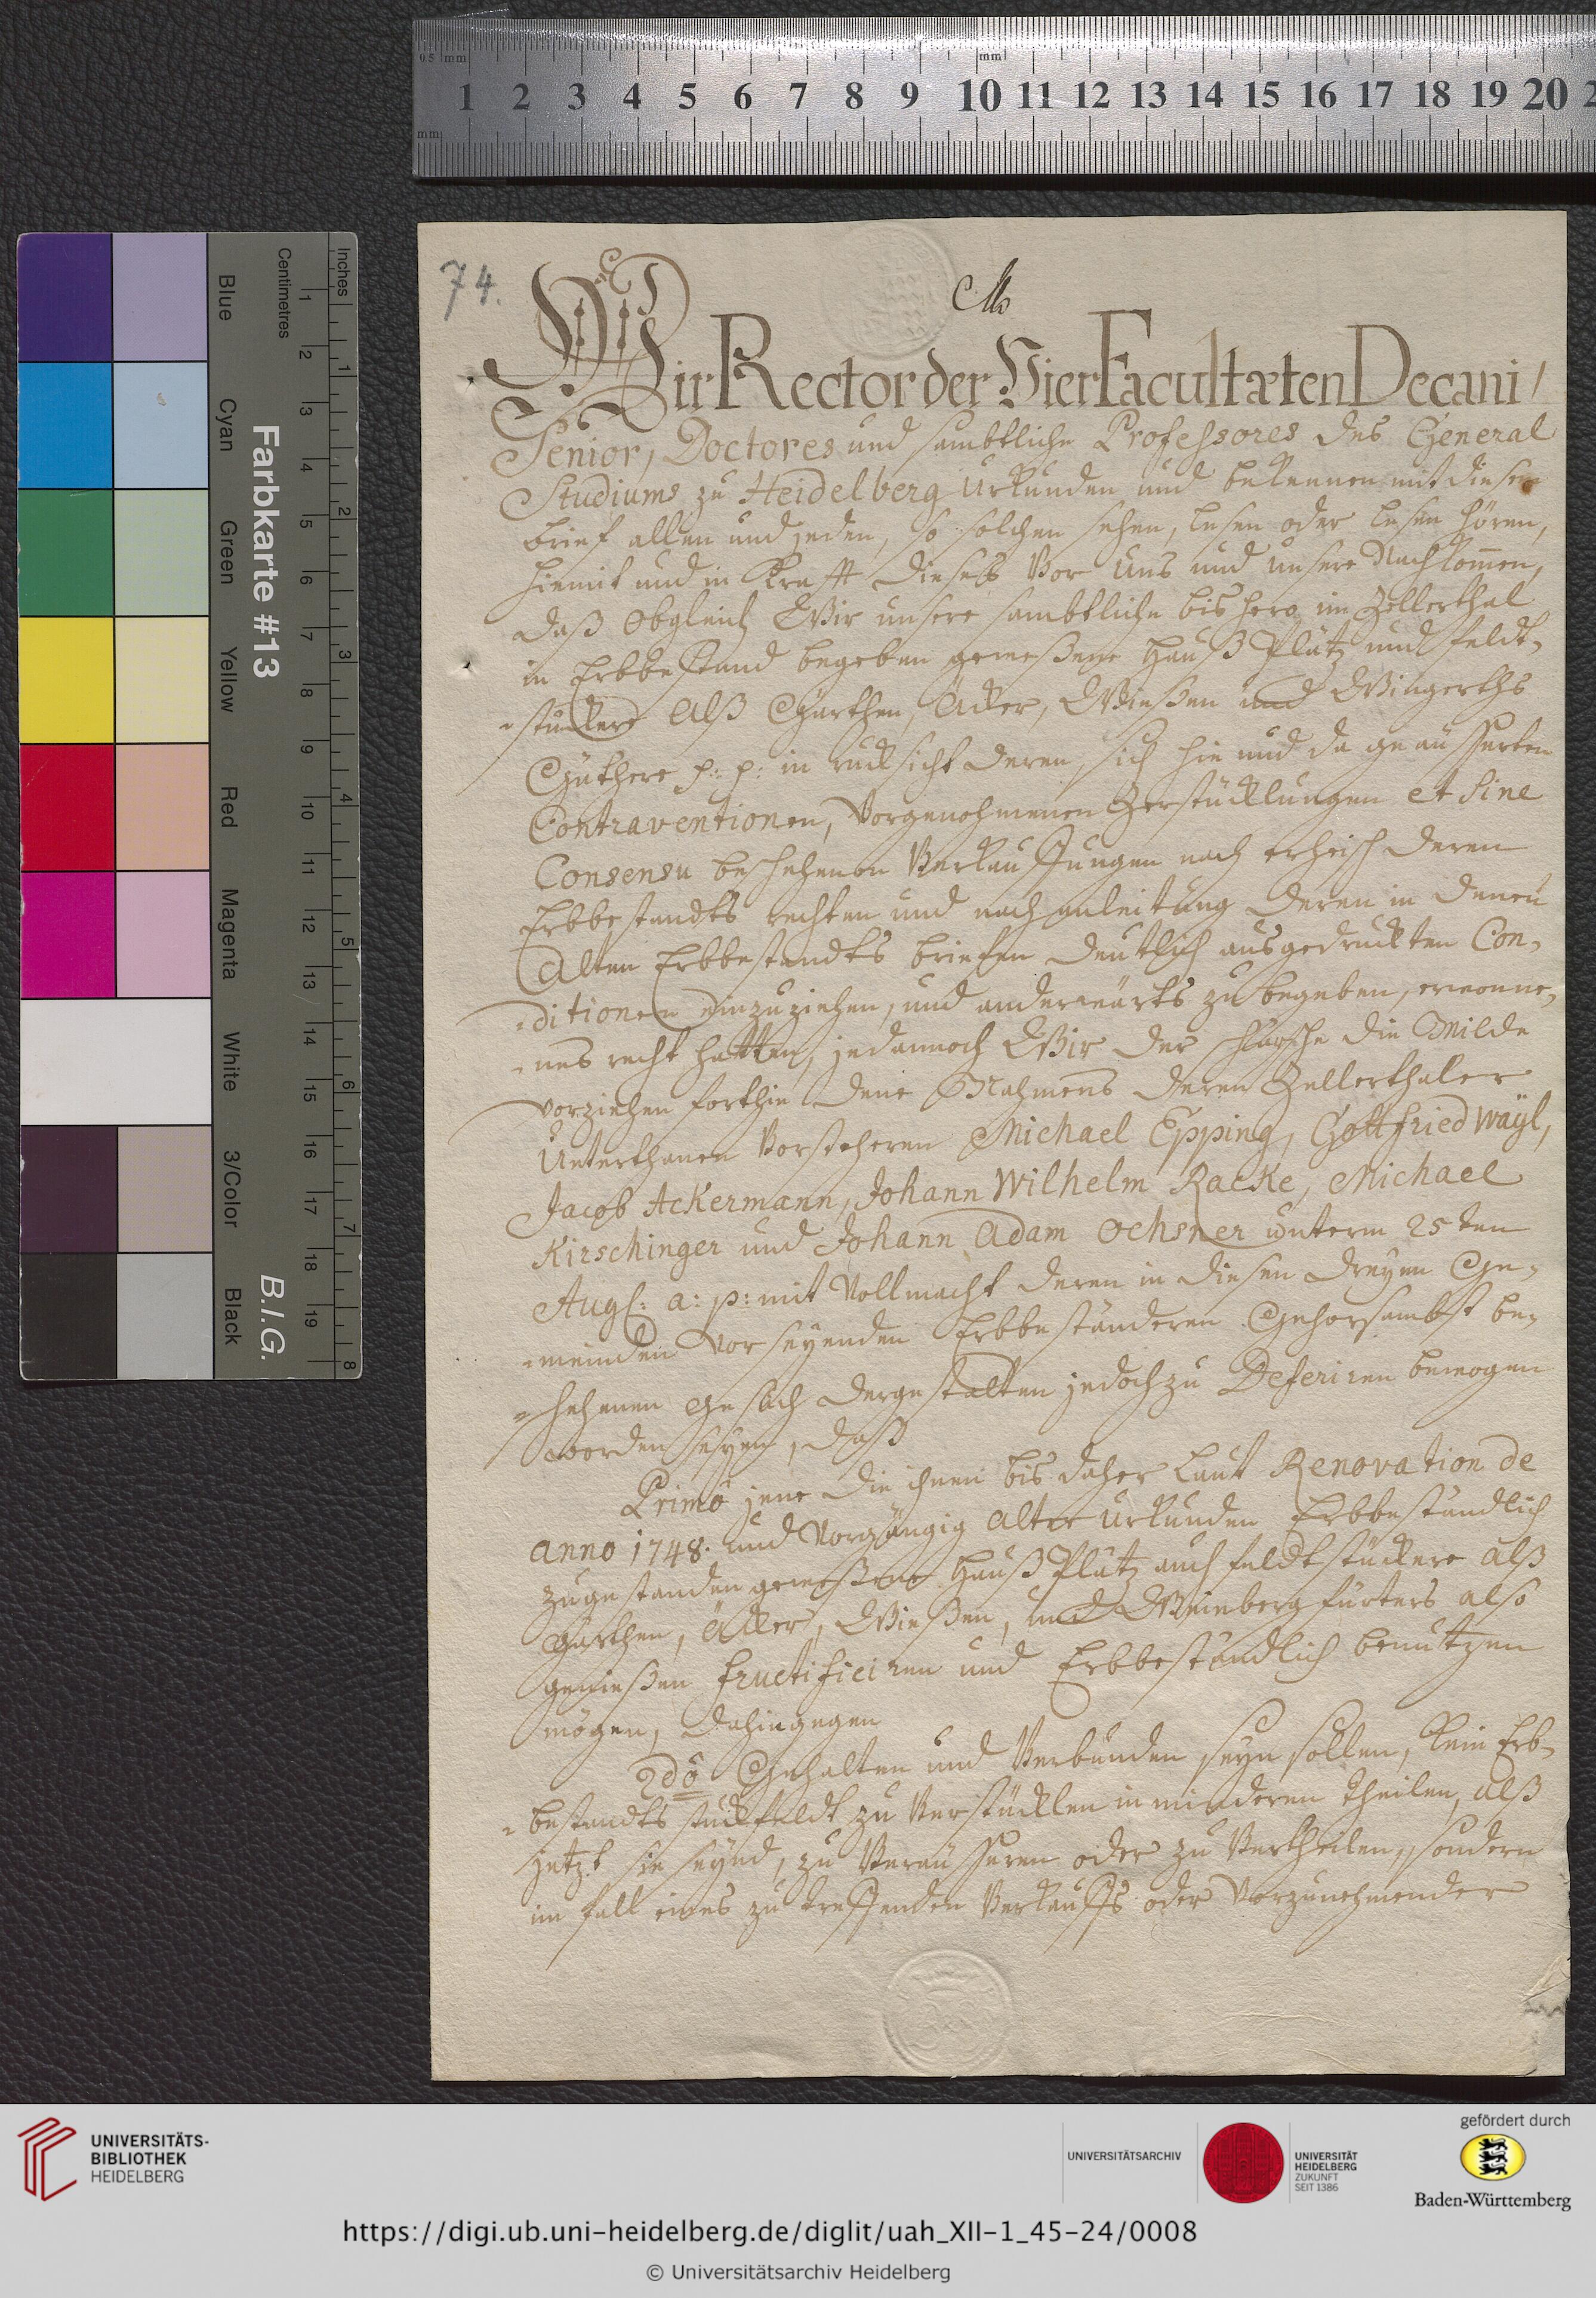 0.5 mm
mm
1 2 3 4 5 6 7 8 9 10 11 12 13 14 15 16 17 18 19 20 2
mm
Inches
Centimetres
1 2 3 4 5 6 7 8 9 10 11 12 13 14 15 16 17 18 19
1 2 3 4 5 6 7 8
Farbkarte #13
B.I.G.
Blue
Cyan
Green
Yellow
Red
Magenta
White
3/Color
Black
74.
Wir Rector der Vier Facultæten Decani /
Senior, Doctores und sambtliche Professores des General
Studiums zu Heidelberg Urkunden und bekennen mit diesem
brief allen und jeden, so solchen sehen, lesen oder lesen hören,
hiemit und in Krafft dieses Vor Uns und unsere Nachkomen,
daß Obgleich Wir unsere sambtliche bishero im Zellerthal
in Erbbestand begeben gewesene Hauß Plätz und feldt-
stückere Alß Gärthen, Äcker, Wießen und Wingerths
Güthere p: p: in rucksicht deren sich hie und da geäusserten
Contraventionen, Vorgenohmenen Zerstücklungen et sine
Consensu beschehenen Verkauffungen nach erheisch deren
Erbbestandts rechten und nach anleitung deren in denen
Alten Erbbestandts briefen deutlich ausgedruckten Con-
ditionen einzuziehen, und anderwärts zu begeben, erwonne-
nes recht hatten, jedannoch Wir der schärfse die Milde
vorziehen forthin dene Nahmens deren Zellerthaler
Unterthanen Vorsteheren Michael Epping, Gottfried Wäyl,
Jacob Ackermann, Johann Wilhelm Racke, Michael
Kirschinger und Johann Adam Ochsner unterm 25ten
Aug: a: p: mit Vollmacht deren in diesen dreyen Ge-
meinden Vor seyenden Erbbeständeren Gehorsambst be-
schehenen Gesuch dergestalten jedoch zu Deferiren bewogen
worden seyen, daß
Primo jene die ihnen bis daher Laut Renovation de
anno 1748. und Vorgängig alter Urkunden Erbbeständlich
zugestanden gewesene Hauß Plätz auch feldtstückere alß
Gärthen, Äcker, Wießen, und Weinberg fürters also
genießen fructificiren und Erbbeständlich benutzen
mögen, dahingegen
2do Gehalten und Verbunden seyn sollen, kein Erb-
bestandts stuckfeldt zu Verstücklen in minderen theilen, alß
jetzt sie seynd, zu Veräusseren oder zu Vertheilen, sondern
im fall eines zu treffenden Verkauffs oder Vorzunehmender
UNIVERSITÄTS-
BIBLIOTHEK
HEIDELBERG
UNIVERSITÄTSARCHIV
UNIVERSITÄT
HEIDELBERG
ZUKUNFT
SEIT 1386
gefördert durch
Baden-Württemberg
https://digi.ub.uni-heidelberg.de/diglit/uah_XII-1_45-24/0008
© Universitätsarchiv Heidelberg